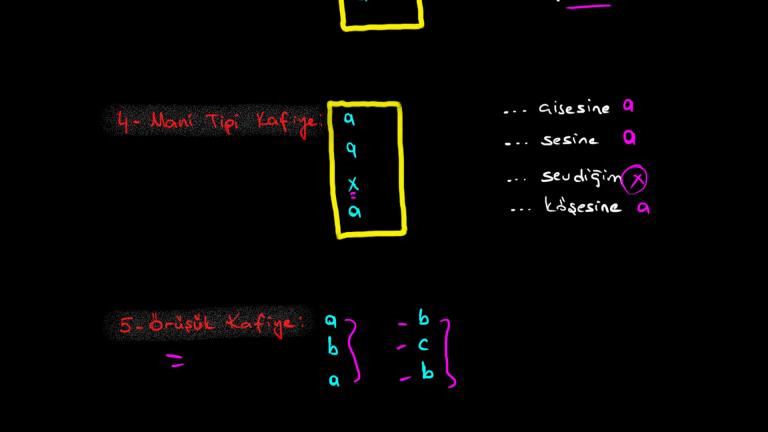 4- Mani Tipi Kafiye:
a
a
x
a
... gişesine a
... sesine a
... sevdiğim x
... köşesine a
5- Örüşük Kafiye:
a - b
b - c
a - b